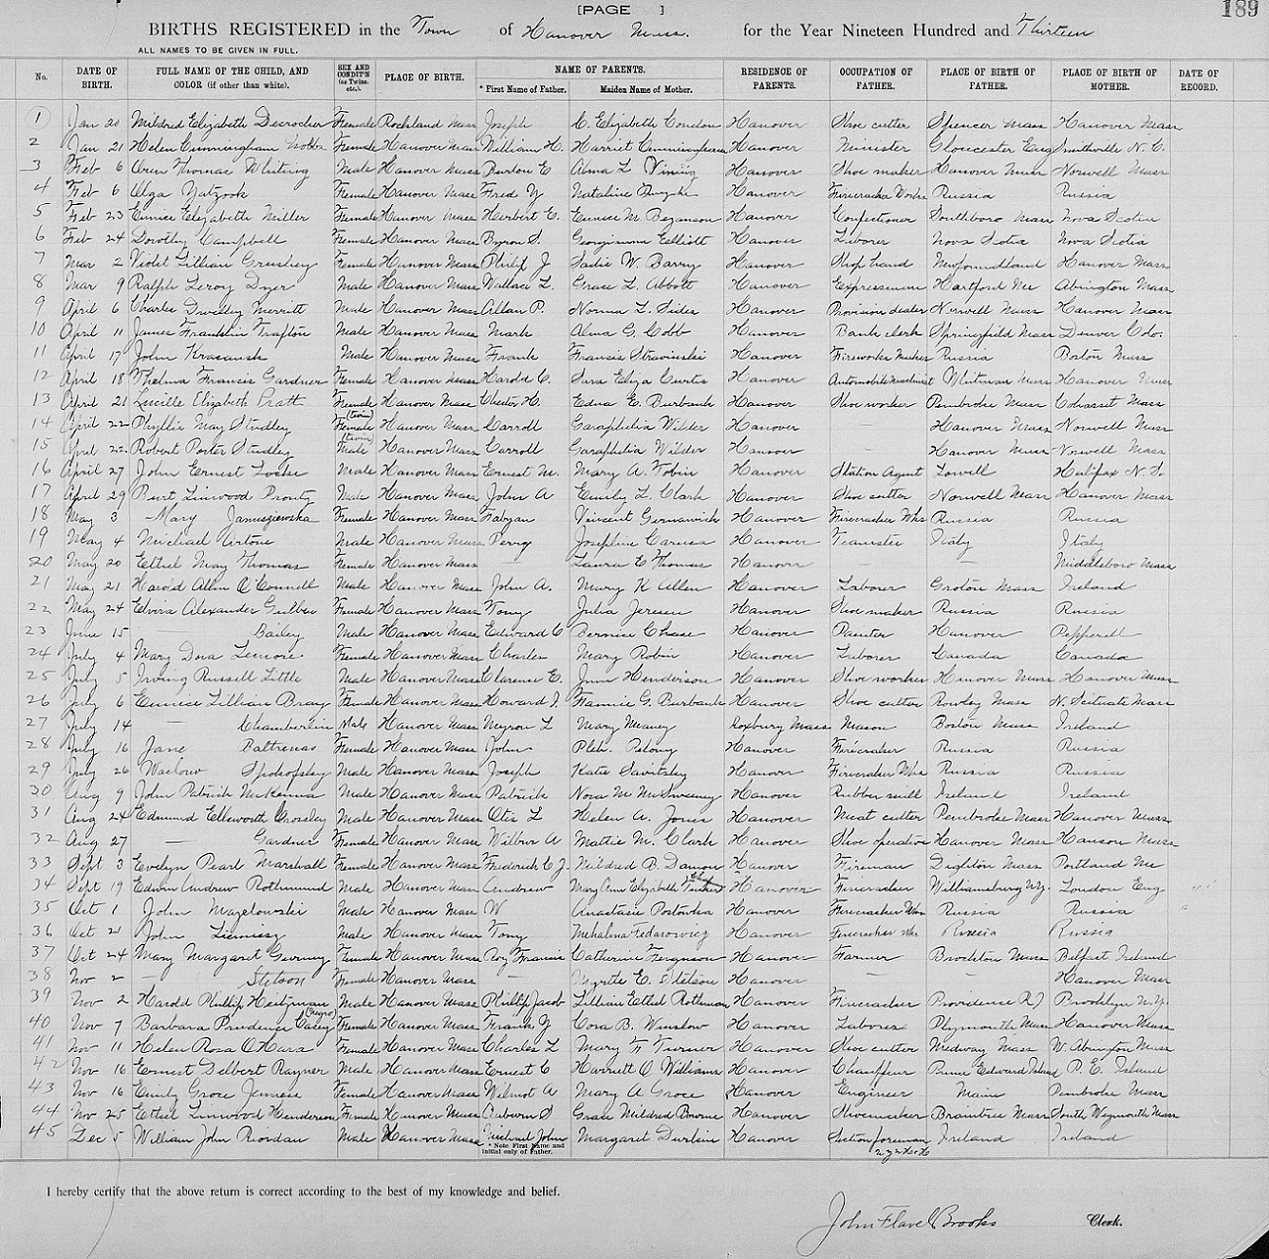 [PAGE ]
189
BIRTHS REGISTERED in the Town of Hanover Mass. for the Year Nineteen Hundred and Thirteen
ALL NAMES TO BE GIVEN IN FULL.
No. DATE OF BIRTH. FULL NAME OF THE CHILD, AND COLOR (if other than white). SEX AND CONDIT'N (as Twins, etc.). PLACE OF BIRTH. NAME OF PARENTS. * First Name of Father. Maiden Name of Mother. RESIDENCE OF PARENTS. OCCUPATION OF FATHER. PLACE OF BIRTH OF FATHER. PLACE OF BIRTH OF MOTHER. DATE OF RECORD.
1 Jan 20 Mildred Elizabeth Desrocher Female Rockland Mass Joseph C. Elizabeth Condon Hanover Shoe cutter Spencer Mass Hanover Mass
2 Jan 21 Helen Cunningham Female Hanover Mass William H. Harriet Cunningham Hanover Minister Gloucester Eng Smithville N. C.
3 Feb 6 Oren Thomas Whiting Male Hanover Mass Burton E Alma L Vining Hanover Shoe maker Hanover Mass Norwell Mass
4 Feb 6 Olga Yatzook Female Hanover Mass Fred Y Nataline Hanover Firecracker Works Russia Russia
5 Feb 23 Eunice Elizabeth Miller Female Hanover Mass Herbert E. Eunice M. Bezanson Hanover Confectioner Southboro Mass Nova Scotia
6 Feb 24 Dorothy Campbell Female Hanover Mass Byron S. Georgianna Elliott Hanover Laborer Nova Scotia Nova Scotia
7 Mar 2 Violet Lillian Female Hanover Mass Philip J Sadie W. Barry Hanover Shop hand Newfoundland Hanover Mass
8 Mar 9 Ralph Leroy Dyer Male Hanover Mass Wallace L. Grace L. Abbott Hanover Expressman Hartford Me Abington Mass
9 April 6 Charles Dwelley Merritt Male Hanover Mass Allan P. Norma L. Sides Hanover Provision dealer Norwell Mass Hanover Mass
10 April 11 James Franklin Trafton Male Hanover Mass Mark Alma G. Cobb Hanover Bank clerk Springfield Mass Denver Colo.
11 April 17 John Male Hanover Mass Frank Francis Hanover Fireworks Maker Russia Boston Mass
12 April 18 Thelma Francis Gardner Female Hanover Mass Harold C. Sara Eliza Curtis Hanover Automobile Machinist Whitman Mass Hanover Mass
13 April 21 Lucille Elizabeth Pratt Female Hanover Mass Chester H. Edna E. Burbank Hanover Shoe worker Pembroke Mass Cohasset Mass
14 April 22 Phyllis May Studley (twin) Female Hanover Mass Carroll Garaphelia Wilder Hanover — Hanover Mass Norwell Mass
15 April 22 Robert Porter Studley (twin) Male Hanover Mass Carroll Garaphelia Wilder Hanover — Hanover Mass Norwell Mass
16 April 27 John Ernest Locke Male Hanover Mass Ernest M. Mary A. Tobin Hanover Station Agent Lowell Halifax N. S.
17 April 29 Burt Linwood Prouty Male Hanover Mass John A Emily L. Clark Hanover Shoe cutter Norwell Mass Hanover Mass
18 May 3 Mary Januszewska Female Hanover Mass Fabyan Vincent Hanover Firecracker Wks Russia Russia
19 May 4 Michael Male Hanover Mass Perry Josephine Caruso Hanover Teamster Italy Italy
20 May 20 Ethel May Thomas Female Hanover Mass — Laura E Thomas Hanover — — Middleboro Mass
21 May 21 Harold Allen O'Connell Male Hanover Mass John A. Mary K Allen Hanover Laborer Groton Mass Ireland
22 May 24 Alexander Female Hanover Mass Tony Julia Hanover Shoe maker Russia Russia
23 June 15 — Bailey Male Hanover Mass Edward C Bernice Chase Hanover Painter Hanover Pepperell
24 July 4 Mary Dora Female Hanover Mass Charles Mary Robin Hanover Laborer Canada Canada
25 July 5 Irving Russell Little Male Hanover Mass Clarence E. Henderson Hanover Shoe worker Hanover Mass Hanover Mass
26 July 6 Eunice Lillian Bray Female Hanover Mass Howard J. Fannie G. Burbank Hanover Shoe cutter Rowley Mass N. Scituate Mass
27 July 14 — Chamberlin Male Hanover Mass Myron L Mary Meaney Roxbury Mass Mason Boston Mass Ireland
28 July 16 Jane Baltrenas Female Hanover Mass John Hanover Firecracker Russia Russia
29 July 26 Male Hanover Mass Joseph Katie Savitsky Hanover Firecracker Wks Russia Russia
30 Aug 9 John Patrick McKenna Male Hanover Mass Patrick Nora M McSweeney Hanover Rubber mill Ireland Ireland
31 Aug 24 Edmund Ellsworth Crossley Male Hanover Mass Otis L Helen A. Jones Hanover Meat cutter Pembroke Mass Hanover Mass
32 Aug 27 — Gardner Female Hanover Mass Wilbur A Mattie M. Clark Hanover Shoe operative Hanover Mass Hanson Mass
33 Sept 3 Evelyn Pearl Marshall Female Hanover Mass Frederick C J. Mildred B. Damon Hanover Fireman Dighton Mass Portland Me
34 Sept 19 Edwin Andrew Rothmund Male Hanover Mass Andrew Mary Ann Elizabeth Hanover Firecracker Williamsburg N.y. London Eng
35 Oct 1 John Mazelowski Male Hanover Mass W Anastasie Hanover Firecracker Wks Russia Russia
36 Oct 21 John Male Hanover Mass Tony Mehalina Fedarowicz Hanover Firecracker Wks Russia Russia
37 Oct 24 Mary Margaret Female Hanover Mass Roy Francis Catherine Ferguson Hanover Farmer Brockton Mass Belfast Ireland
38 Nov 2 — Stetson Female Hanover Mass — Myrtle E. Stetson Hanover — — Hanover Mass
39 Nov 2 Harold Phillip Heitzman Male Hanover Mass Phillip Jacob Lillian Ethel Rothman Hanover Firecracker Providence R I Brooklyn N.Y.
40 Nov 7 Barbara Prudence Casey (Negro) Female Hanover Mass Frank Y Cora B. Winslow Hanover Laborer Plymouth Mass Hanover Mass
41 Nov 11 Helen Rosa O'Hara Female Hanover Mass Charles L Mary F. Turner Hanover Shoe cutter Medway Mass W. Abington Mass
42 Nov 16 Ernest Delbert Rayner Male Hanover Mass Ernest C Harriett O Williams Hanover Chauffeur Prince Edward Island P. E. Island
43 Nov 16 Emily Grose Jenness Female Hanover Mass Wilmot A Mary A Grose Hanover Engineer Maine Pembroke Mass
44 Nov 25 Ethel Linwood Henderson Female Hanover Mass Auburn S Grace Mildred Bourne Hanover Shoemaker Braintree Mass South Weymouth Mass
45 Dec 5 William John Riordan Male Hanover Mass Michael John Margaret Hanover Section foreman Ireland Ireland
* Note First Name and initial only of Father.
I hereby certify that the above return is correct according to the best of my knowledge and belief.
John Flavel Brooks Clerk.